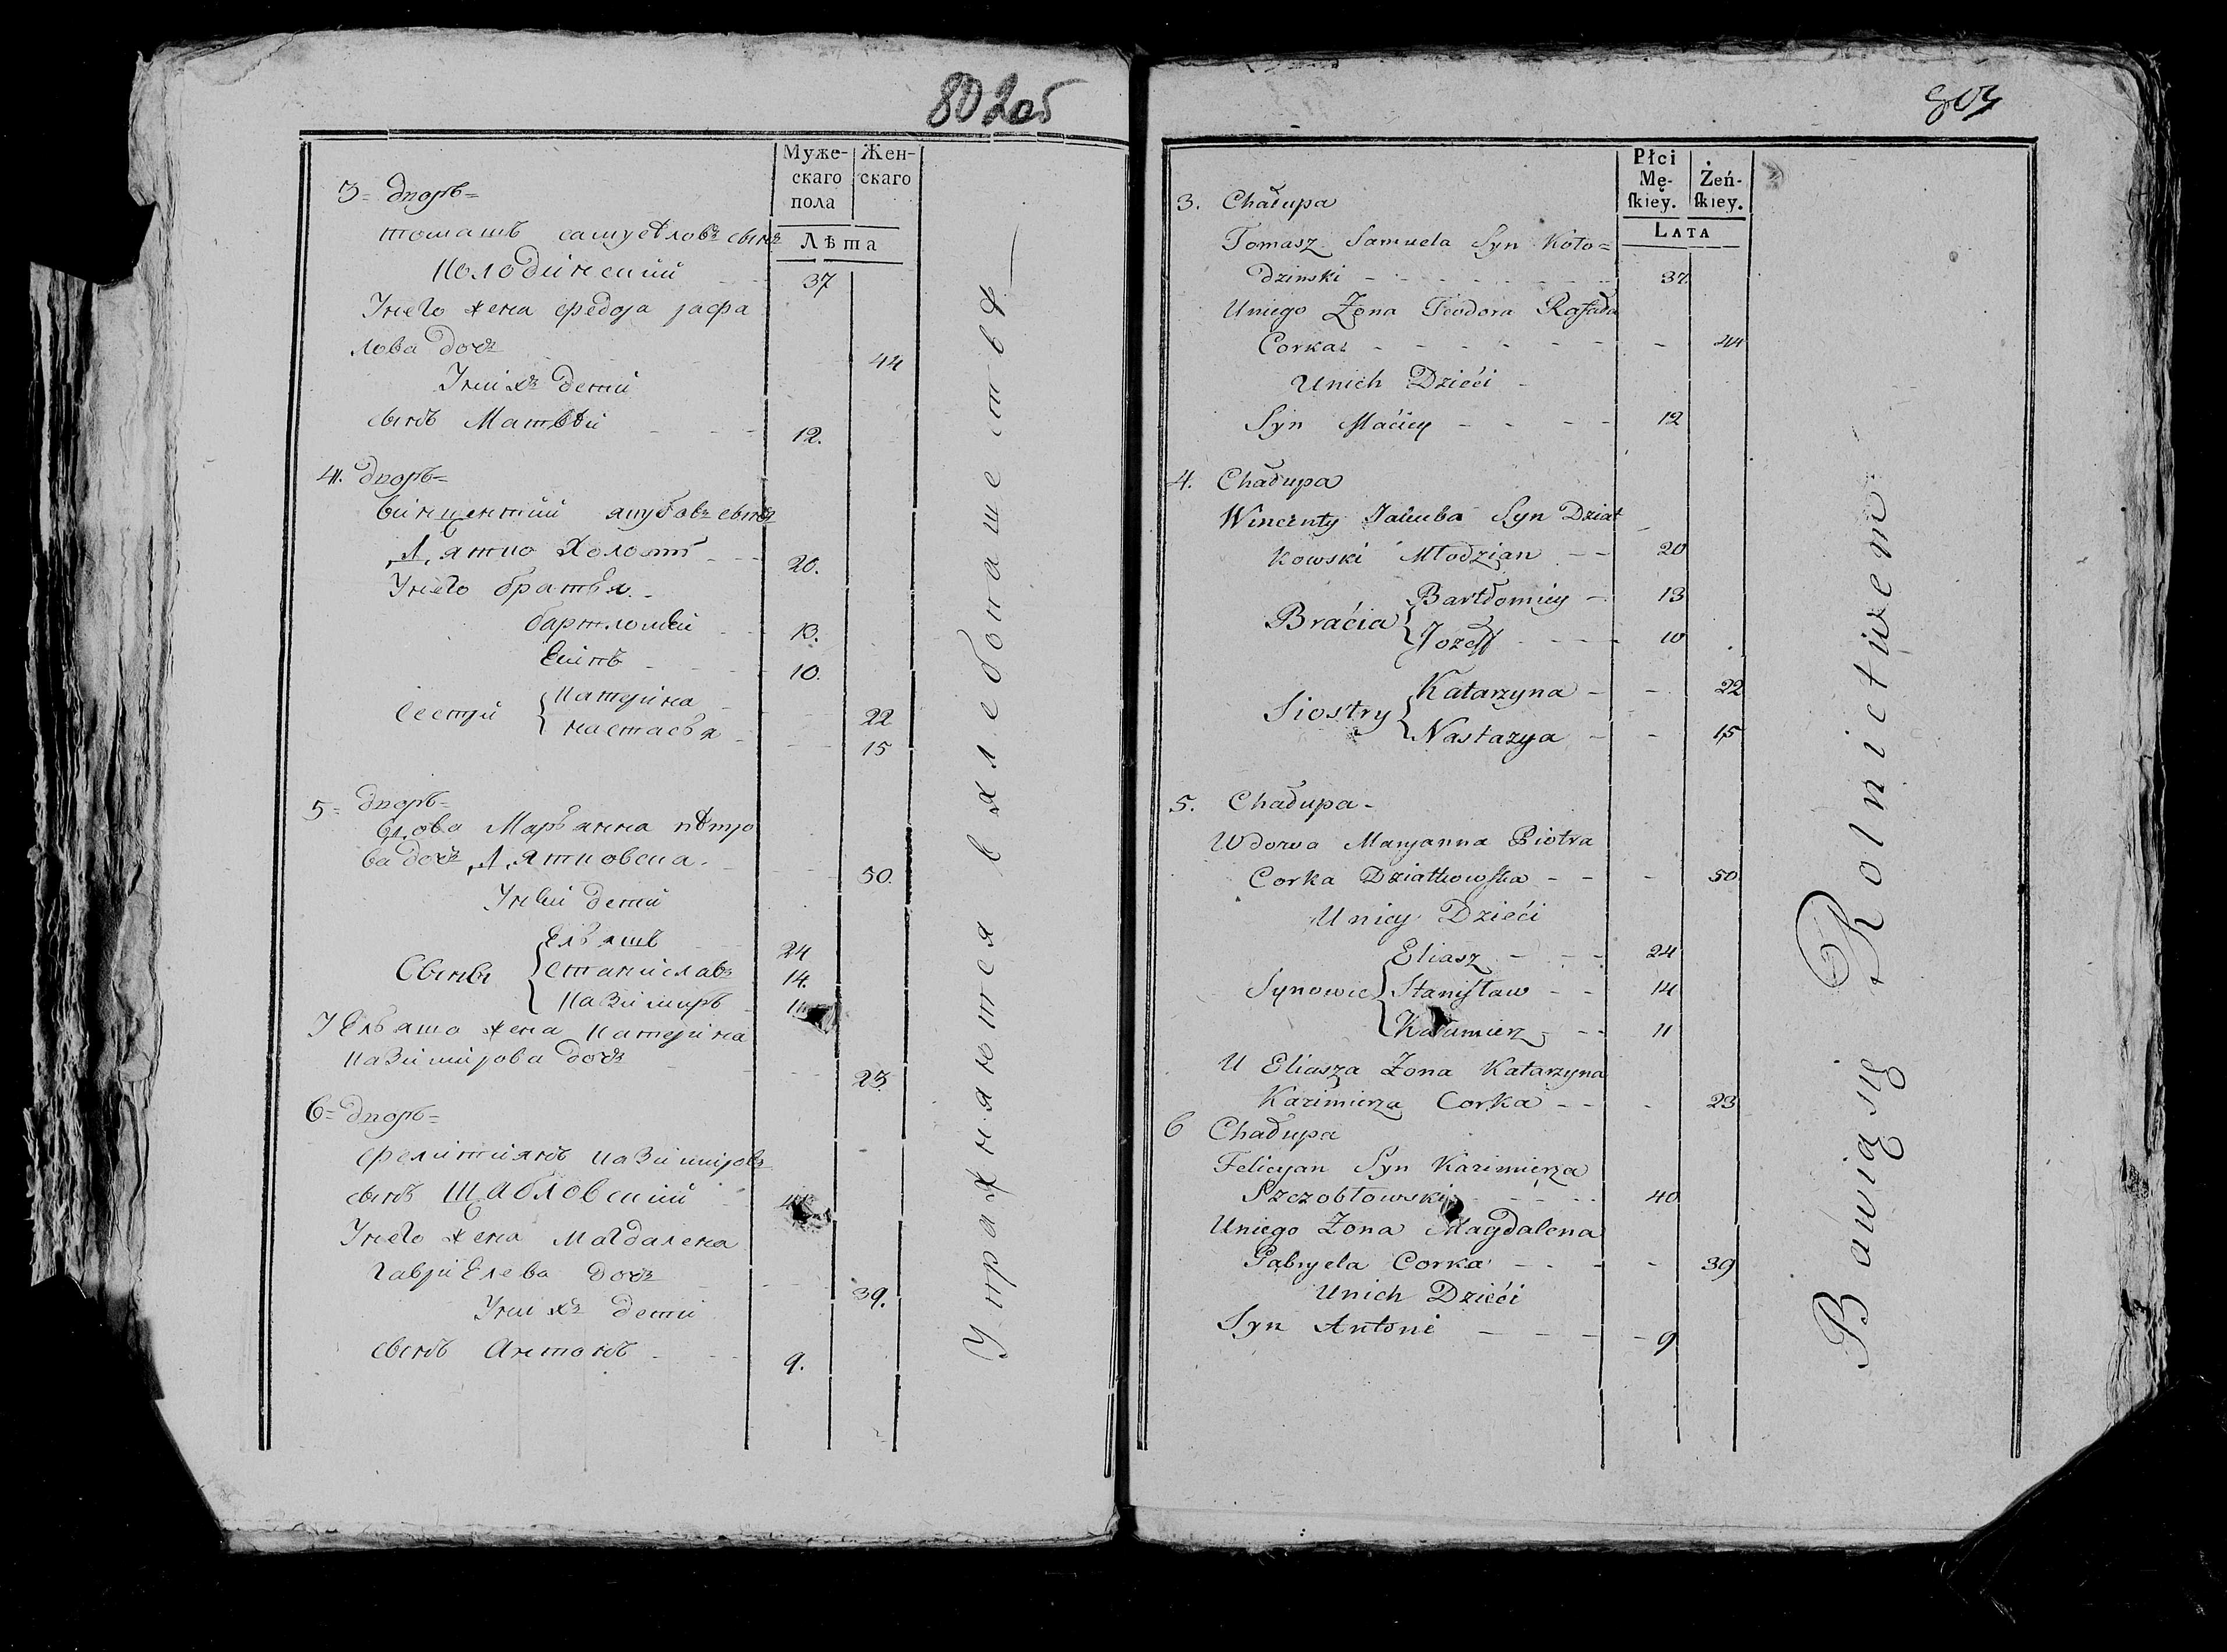 802об
Муже-
скаго
пола
Жен-
скаго
Лѣта
3= дворъ=
томашъ самуѣловъ сынъ
Колодинский 37
Унего жена Федора рафа
лова дочъ 44
Унихъ дети
сынъ Матвѣй 12.
4. дворъ=
Винцентий якубовъ сынъ
Дятко холостъ 20.
Унего братья
бартломей 13.
Есипъ 10.
Сестры
катерина 22
настасья 15
5= дворъ=
вдова Марьянна пѣтро
ва дочъ Дятковска 50.
Уней дети
Сыны
Ельяшъ 24
станиславъ 14.
казимиръ 11
У Ельяша жена катерина
казимирова дочъ 23
6= дворъ=
фелитиянъ казимировъ
сынъ Щабловский
Унего жена Магдалена
гаврiелева дочъ 39.
Унихъ дети
сынъ Антонъ 9.
Упражняются в хлебопашестве
803
Płci
Mę-
skiey.
Żeń-
skiey.
LATA
3. Chałupa
Tomasz Samuela Syn Koło=
dzinski 37.
Uniego Żona Teodora Rafała
Corka 44
Unich Dzieći
Syn Maćiey 12
4. Chałupa
Wincenty Jakuba Syn Dziat
kowski Młodzian 20
Braćia
Bartłomiey 13
Jozeff 10
Siostry
Katarzyna 22
Nastazya 15
5. Chałupa
Wdowa Maryanna Piotra
Corka Dziatkowska 50
Uniey Dzieći
Synowie
Eliasz 24
Stanisław 14
Kazimierz 11
U Eliasza Żona Katarzyna
Kazimierza Corka 23
6 Chałupa
Felicyan Syn Kazimierza
Szczobłowski 40
Uniego Żona Magdalena
Gabryela Corka 39
Unich Dzieći
Syn Antoni 9
Bawią się Rolnictwem